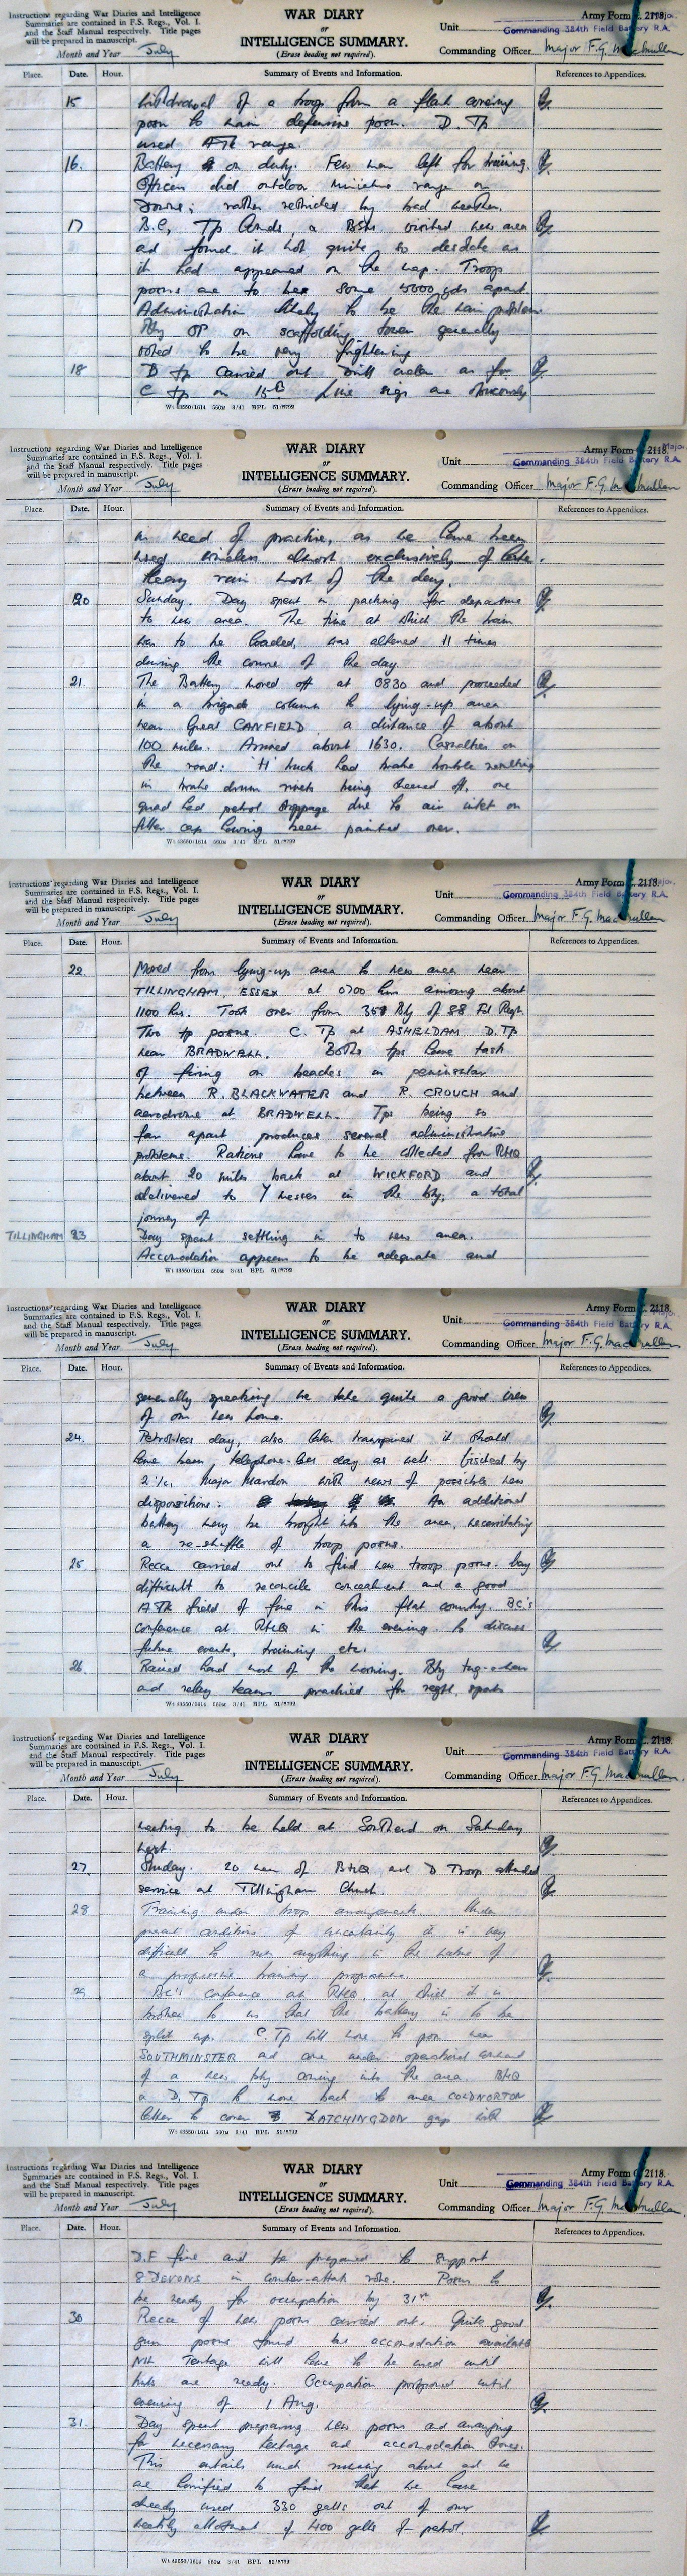 Instructions regarding War Diaries and Intelligence
Summaries are contained in F.S. Regs., Vol. I.
and the Staff Manual respectively. Title pages
will be prepared in manuscript.
Month and Year July
WAR DIARY
or
INTELLIGENCE SUMMARY.
(Erase heading not required).
Army Form C. 2118.
Unit
Commanding 384th Field Battery R.A.
Commanding Officer Major F.G. MacMullen
Place. Date. Hour. Summary of Events and Information. References to Appendices.
15 Withdrawal of a troop from a flank covering
posn to main defensive posn. D. Tp
used ATk range.
16. Battery on duty. Few men left for training.
Officers did outdoor miniature range on
downs; rather restricted by bad weather.
17 B.C, Tp Comds, a BSM visited new area
ad found it not quite so desolate as
it had appeared on the map. Troop
posns are to be some 5000 yds apart.
Administration likely to be the main problem.
Bty OP on scaffolding tower generally
voted to be very frightening
18 D tp carried out drill order as for
C tp on 15th Line sigs are obviously
Wt 43550/1614 560m 3/41 BPL 51/8792
Instructions regarding War Diaries and Intelligence
Summaries are contained in F.S. Regs., Vol. I.
and the Staff Manual respectively. Title pages
will be prepared in manuscript.
Month and Year July
WAR DIARY
or
INTELLIGENCE SUMMARY.
(Erase heading not required).
Army Form C. 2118.
Unit
Major
Commanding 384th Field Battery R.A.
Commanding Officer Major F.G. MacMullen
Place. Date. Hour. Summary of Events and Information. References to Appendices.
in need of practice, as we have been
used wireless almost exclusively of late.
Heavy rain most of the day.
20 Sunday. Day spent in packing for departure
to new area. The time at which the train
was to be loaded, was altered 11 times
during the course of the day.
21. The Battery moved off at 0830 and proceeded
in a brigade column to lying-up area
near Great CANFIELD a distance of about
100 miles. Arrived about 1630. Casualties on
the road: 'H' truck had brake trouble resulting
in brake drum rivets being sheered off, one
quad had petrol stoppage due to air inlet on
filter cap having been painted over.
Wt 43550/1614 560m 3/41 BPL 51/8792
Instructions regarding War Diaries and Intelligence
Summaries are contained in F.S. Regs., Vol. I.
and the Staff Manual respectively. Title pages
will be prepared in manuscript.
Month and Year July
WAR DIARY
or
INTELLIGENCE SUMMARY.
(Erase heading not required).
Army Form C. 2118.
Unit
Major
Commanding 384th Field Battery R.A.
Commanding Officer Major F.G. MacMullen
Place. Date. Hour. Summary of Events and Information. References to Appendices.
22. Moved from lying-up area to new area near
TILLINGHAM, ESSEX at 0700 hrs arriving about
1100 hrs. Took over from 351 Bty of 88 Fd Regt
Two tp posns. C. Tp at ASHELDAM D.Tp
near BRADWELL. Both tps have task
of firing on beaches in peninsular
between R. BLACKWATER and R. CROUCH and
aerodrome at BRADWELL. Tps being so
far apart produces several administrative
problems. Rations have to be collected from RHQ
about 20 miles back at WICKFORD and
delivered to 7 messes in the bty; a total
journey of
TILLINGHAM 23 Day spent settling in to new area.
Accomodation appears to be adequate and
Wt 43550/1614 560m 3/41 BPL 51/8792
Instructions regarding War Diaries and Intelligence
Summaries are contained in F.S. Regs., Vol. I.
and the Staff Manual respectively. Title pages
will be prepared in manuscript.
Month and Year July
WAR DIARY
or
INTELLIGENCE SUMMARY.
(Erase heading not required).
Army Form C. 2118.
Unit
Major
Commanding 384th Field Battery R.A.
Commanding Officer Major F.G. MacMullen
Place. Date. Hour. Summary of Events and Information. References to Appendices.
generally speaking we take quite a good view
of our new home.
24. Petrol-less day, also later transpired it should
have been telephone-less day as well. Visited by
2 i/c, Major Mardon with news of possible new
dispositions: An additional
battery may be brought into the area, necessitating
a re-shuffle of troop posns.
25. Recce carried out to find new troop posns. Very
difficult to reconcile concealment and a good
ATk field of fire in this flat country. BC's
conference at RHQ in the evening to discuss
future events, training etc.
26. Rained hard most of the morning. Bty tug-o-war
and relay teams practised for regtl. sports
Wt 43550/1614 560m 3/41 BPL 51/8792
Instructions regarding War Diaries and Intelligence
Summaries are contained in F.S. Regs., Vol. I.
and the Staff Manual respectively. Title pages
will be prepared in manuscript.
Month and Year July
WAR DIARY
or
INTELLIGENCE SUMMARY.
(Erase heading not required).
Army Form C. 2118.
Unit
Major
Commanding 384th Field Battery R.A.
Commanding Officer Major F.G. MacMullen
Place. Date. Hour. Summary of Events and Information. References to Appendices.
meeting to be held at Southend on Saturday
next.
27 Sunday. 20 men of BHQ and D Troop attended
service at Tillingham Church.
28 Training under troop arrangements. Under
present conditions of uncertainty it is very
difficult to run anything in the nature of
a progressive training programme.
29 BC's conference at RHQ, at which it is
broken to us that the battery is to be
split up. C. Tp will move to posn near
SOUTHMINSTER ad come under operational command
of a new bty coming into the area. BHQ
a D. Tp to move back to area COLDNORTON
latter to cover LATCHINGDON gap with
Wt 43550/1614 560m 3/41 BPL 51/8792
Instructions regarding War Diaries and Intelligence
Summaries are contained in F.S. Regs., Vol. I.
and the Staff Manual respectively. Title pages
will be prepared in manuscript.
Month and Year July
WAR DIARY
or
INTELLIGENCE SUMMARY.
(Erase heading not required).
Army Form C. 2118.
Unit
Commanding 384th Field Battery R.A.
Commanding Officer Major F.G. MacMullen
Place. Date. Hour. Summary of Events and Information. References to Appendices.
D.F fire and be prepared to support
8 DEVONS in counter-attack role. Posns to
be ready for occupation by 31st
30 Recce of new posns carried out. Quite good
gun posns found but accomodation available
nil. Tentage will have to be used until
huts are ready. Occupation postponed until
evening of 1 Aug.
31. Day spent preparing new posns and arranging
for necessary tentage ad accomodation stores.
This entails much rushing about ad we
are horrified to find that we have
already used 330 galls out of our
weekly allotment of 400 galls of petrol.
Wt 43550/1614 560m 3/41 BPL 51/8792